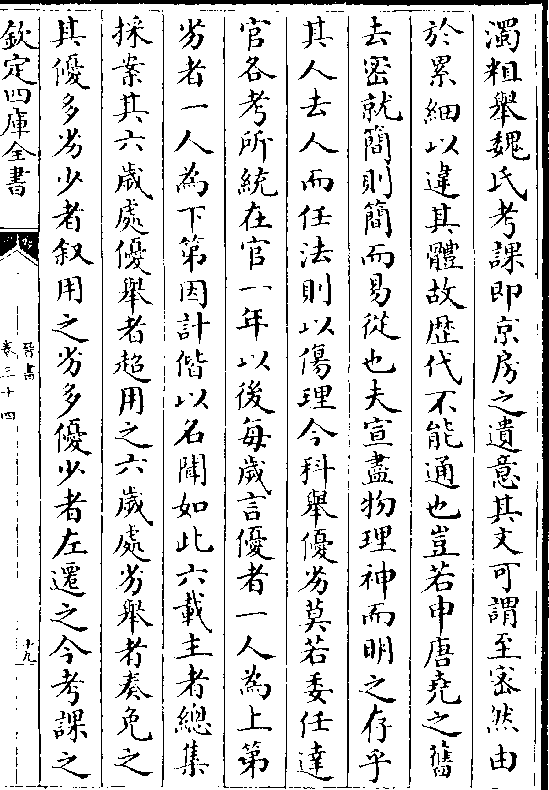 濁粗舉魏氏考課即京房之遺意其文可謂至宻然由
於累細以違其體故歴代不能通也豈若申唐堯之舊
去宻就簡則簡而易從也夫宣盡物理神而明之存乎
其人去人而任法則以傷理今科舉優劣莫若委任達
官各考所統在官一年以後每歲言優者一人為上第
劣者一人為下第因計偕以名聞如此六載主者總集
採案其六歲處優舉者超用之六歲處劣舉者奏免之
其優多劣少者叙用之劣多優少者左遷之今考課之
欽定四庫全書
晉書
卷三十四
十九